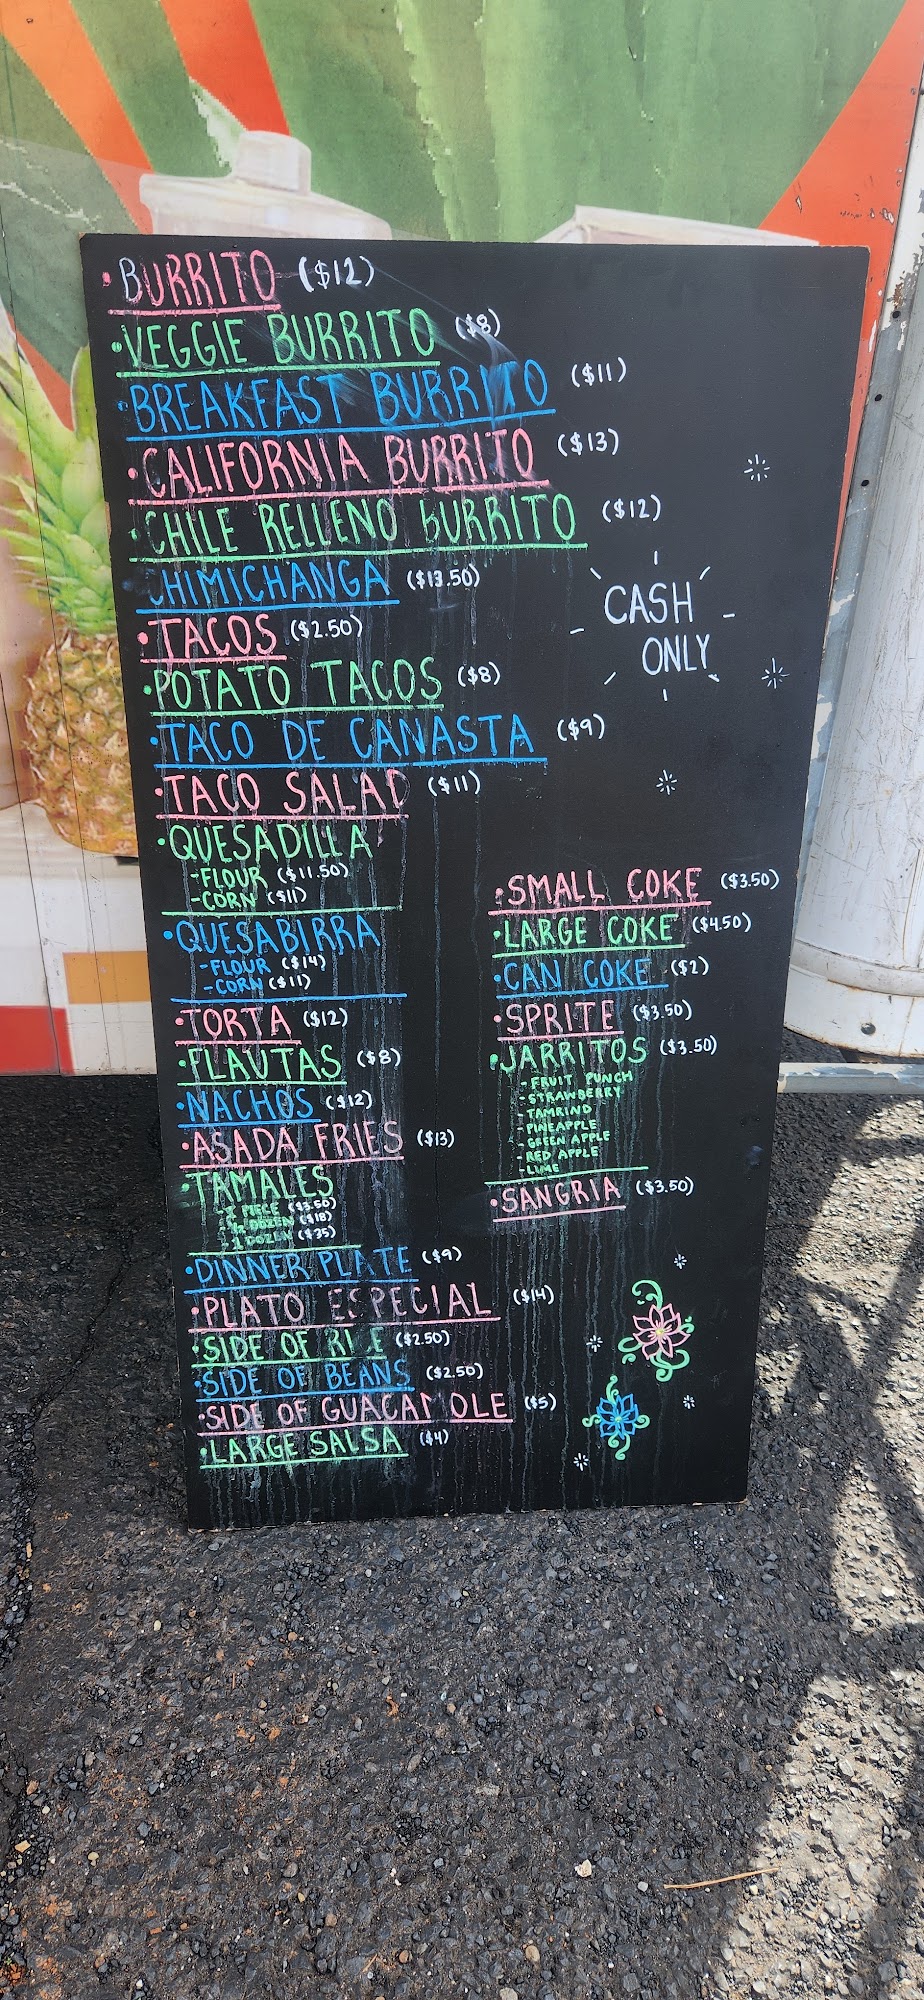 ·BURRITO ($12)
·VEGGIE BURRITO ($8)
·BREAKFAST BURRITO ($11)
·CALIFORNIA BURRITO ($13)
·CHILE RELLENO BURRITO ($12)
CHIMICHANGA ($13.50)
·TACOS ($2.50)
·POTATO TACOS ($8)
·TACO DE CANASTA ($9)
·TACO SALAD ($11)
·QUESADILLA
-FLOUR ($11.50)
-CORN ($11)
·QUESABIRRA
-FLOUR ($14)
-CORN ($11)
·TORTA ($12)
·FLAUTAS ($8)
·NACHOS ($12)
·ASADA FRIES ($13)
·TAMALES
-1 PIECE ($3.50)
-½ DOZEN ($18)
-1 DOZEN ($35)
·DINNER PLATE ($9)
·PLATO ESPECIAL ($14)
·SIDE OF RICE ($2.50)
·SIDE OF BEANS ($2.50)
·SIDE OF GUACAMOLE ($5)
·LARGE SALSA ($4)
CASH
ONLY
·SMALL COKE ($3.50)
·LARGE COKE ($4.50)
·CAN COKE ($2)
·SPRITE ($3.50)
·JARRITOS ($3.50)
-FRUIT PUNCH
-STRAWBERRY
-TAMRIND
-PINEAPPLE
-GREEN APPLE
-RED APPLE
-LIME
·SANGRIA ($3.50)